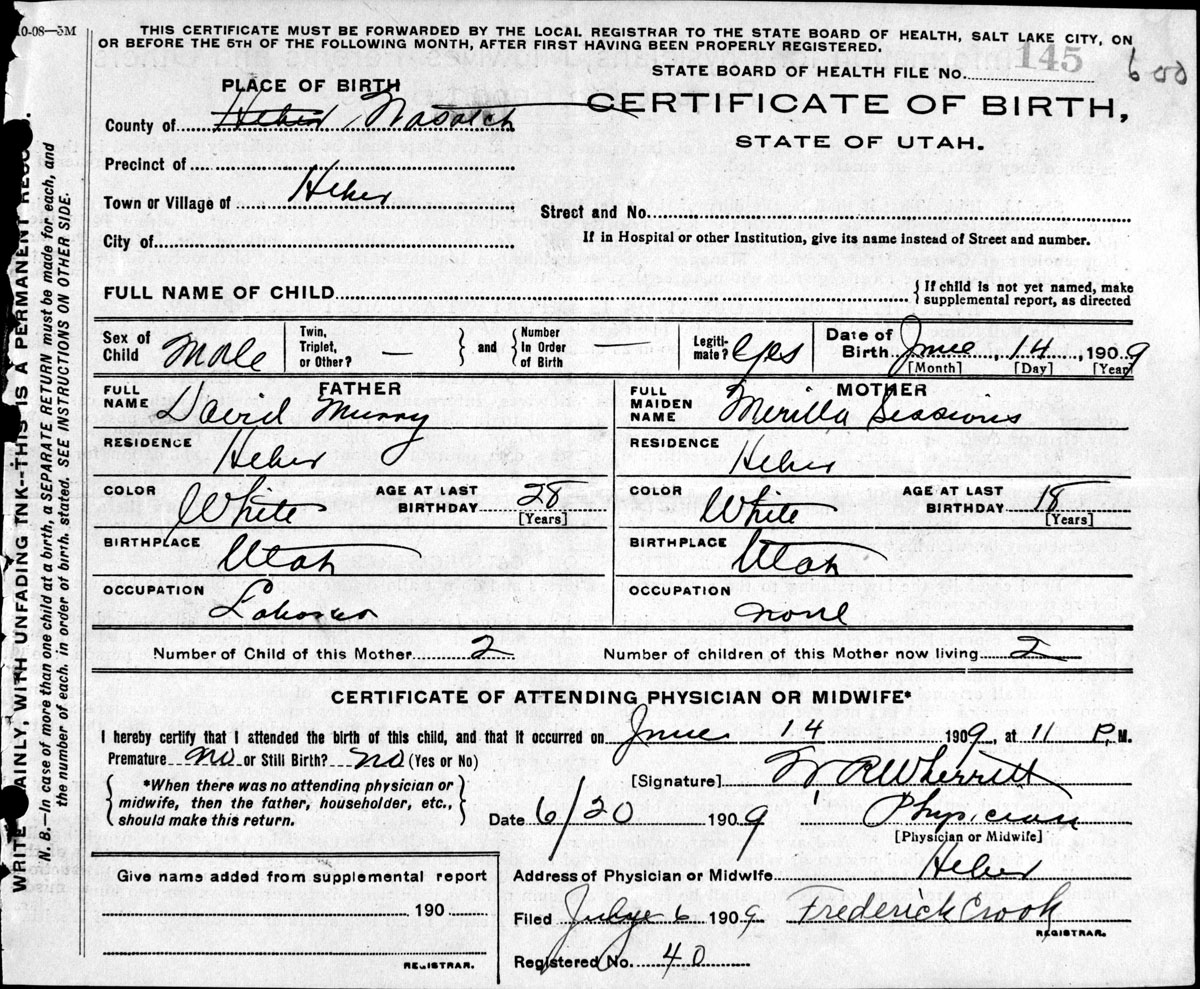 10-08—3M
THIS CERTIFICATE MUST BE FORWARDED BY THE LOCAL REGISTRAR TO THE STATE BOARD OF HEALTH, SALT LAKE CITY, ON
OR BEFORE THE 5TH OF THE FOLLOWING MONTH, AFTER FIRST HAVING BEEN PROPERLY REGISTERED.
STATE BOARD OF HEALTH FILE No. 145 600
PLACE OF BIRTH
CERTIFICATE OF BIRTH,
STATE OF UTAH.
County of Heber, Wasatch
Precinct of
Town or Village of Heber
Street and No.
City of
If in Hospital or other Institution, give its name instead of Street and number.
FULL NAME OF CHILD
{If child is not yet named, make
supplemental report, as directed
Sex of Child Male
Twin, Triplet, or Other? —
and
Number In Order of Birth —
Legiti-mate? Yes
Date of Birth June, 14, 1909
[Month] [Day] [Year]
FATHER
FULL NAME David Murry
RESIDENCE Heber
COLOR White
AGE AT LAST BIRTHDAY 28 [Years]
BIRTHPLACE Utah
OCCUPATION Laborer
MOTHER
FULL MAIDEN NAME Merilla Sessions
RESIDENCE Heber
COLOR White
AGE AT LAST BIRTHDAY 18 [Years]
BIRTHPLACE Utah
OCCUPATION none
Number of Child of this Mother 2 Number of children of this Mother now living 2
CERTIFICATE OF ATTENDING PHYSICIAN OR MIDWIFE*
I hereby certify that I attended the birth of this child, and that it occurred on June 14 1909, at 11 P. M.
Premature no or Still Birth? no (Yes or No)
[Signature] W R Wherritt
{*When there was no attending physician or
midwife, then the father, householder, etc.,
should make this return.}
Date 6/20 1909 Physician
[Physician or Midwife]
Address of Physician or Midwife Heber
Filed July 6 1909 Frederick Crook
REGISTRAR.
Registered No. 40
Give name added from supplemental report
190
REGISTRAR.
WRITE AINLY, WITH UNFADING INK--THIS IS A PERMANENT RECO
N. B.—In case of more than one child at a birth, a SEPARATE RETURN must be made for each, and
the number of each, in order of birth, stated. SEE INSTRUCTIONS ON OTHER SIDE.